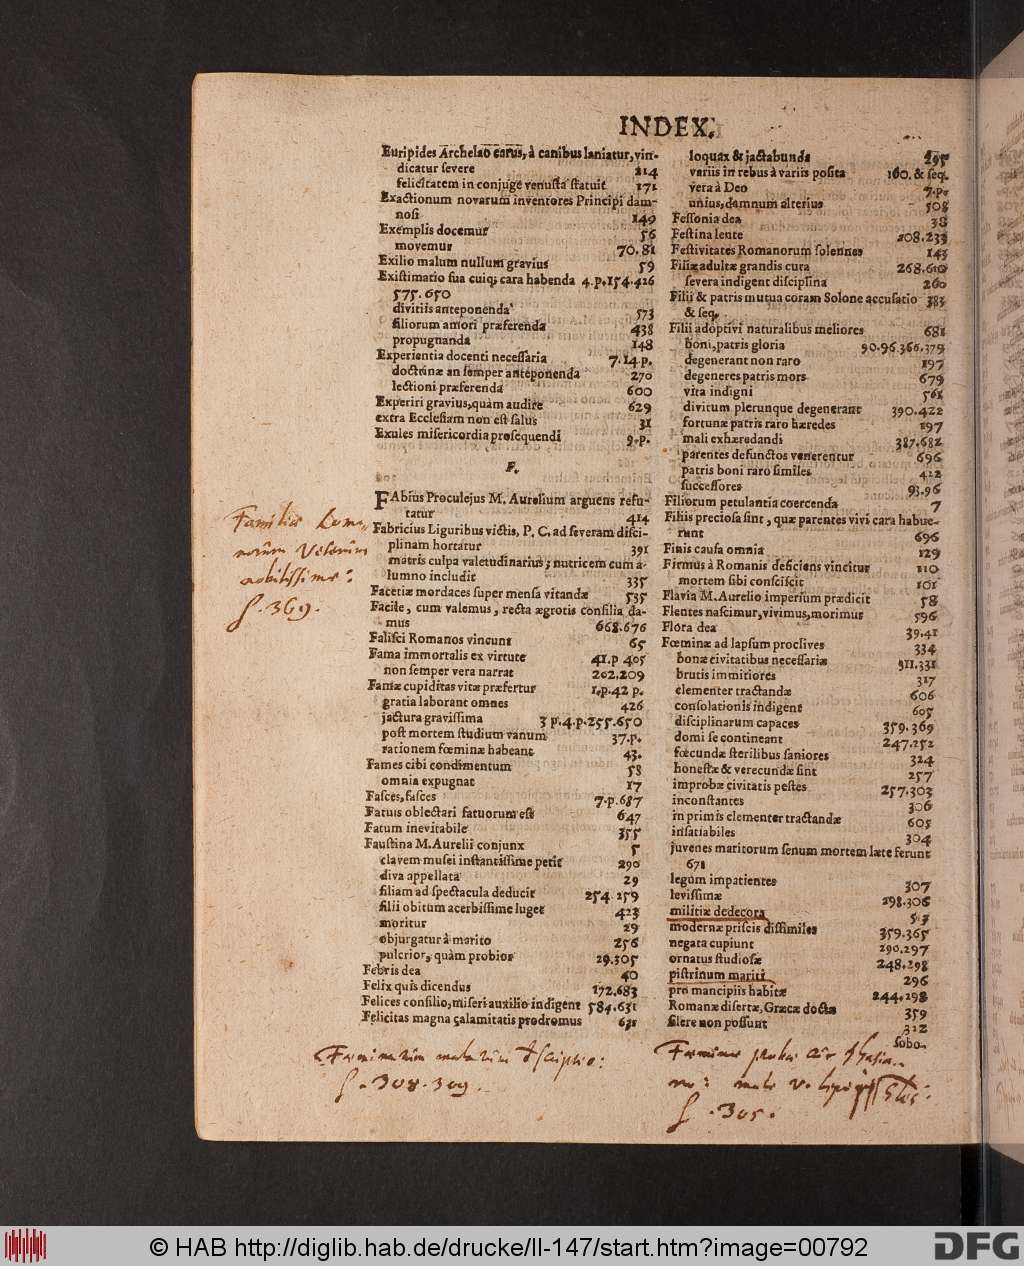 INDEX.
Euripides Archelao carus, à canibus laniatur, vin-
dicatur severe 214
felicitatem in conjuge venusta statuit 171
Exactionum novarum inventores Principi dam-
nosi 149
Exemplis docemur 56
movemur 70.81
Exilio malum nullum gravius 59
Existimatio sua cuiq; cara habenda 4.p.154.426
575.650
divitiis anteponenda 573
filiorum amori præferenda 438
propugnanda 148
Experientia docenti necessaria 7.14.p.
doctrinæ an semper anteponenda 270
lectioni præferenda 600
Experiri gravius, quàm audire 629
extra Ecclesiam non est salus 31
Exules misericordia prosequendi 9.p.
F.
FAbius Proculejus M. Aurelium arguens refu-
tatur 414
Fabricius Liguribus victis, P. C. ad severam disci-
plinam hortatur 391
matris culpa valetudinarius; nutricem cum a-
lumno includit 335
Facetiæ mordaces super mensa vitandæ 535
Facile, cum valemus, recta ægrotis consilia da-
mus 668.676
Falisci Romanos vincunt 65
Fama immortalis ex virtute 41.p 405
non semper vera narrat 202.209
Famæ cupiditas vitæ præfertur 1.p.42 p.
gratia laborant omnes 426
jactura gravissima 3 p.4.p.255.650
post mortem studium vanum 37.p.
rationem fœminæ habeant 43.
Fames cibi condimentum 58
omnia expugnat 17
Fasces, fasces 7.p.687
Fatuis oblectari fatuorum est 647
Fatum inevitabile 355
Faustina M. Aurelii conjunx 5
clavem musei instantissime petit 290
diva appellata 29
filiam ad spectacula deducit 254.259
filii obitum acerbissime luget 423
moritur 29
objurgatur à marito 256
pulcrior, quàm probior 29.305
Febris dea 40
Felix quis dicendus 172.683
Felices consilio, miseri auxilio indigent 584.631
Felicitas magna calamitatis prodromus 631
loquax & jactabunda 295
variis in rebus à variis posita 160. & seq.
vera à Deo 7.p.
unius, damnum alterius 508
Fessonia dea 38
Festina lente 208.233
Festivitates Romanorum solennes 143
Filiæ adultæ grandis cura 268.610
severa indigent disciplina 260
Filii & patris mutua coram Solone accusatio 383
& seq.
Filii adoptivi naturalibus meliores 681
boni, patris gloria 90.96.366.379
degenerant non raro 197
degeneres patris mors 679
vita indigni 561
divitum plerunque degenerant 390.422
fortunæ patris raro hæredes 197
mali exhæredandi 387.682
parentes defunctos venerentur 696
patris boni raro similes 412
successores 93.96
Filiorum petulantia coercenda 7
Filiis preciosa sint, quæ parentes vivi cara habue-
runt 696
Finis causa omnia 129
Firmus à Romanis deficiens vincitur 110
mortem sibi consciscit 101
Flavia M. Aurelio imperium prædicit 58
Flentes nascimur, vivimus, morimur 596
Flora dea 39.41
Fœminæ ad lapsum proclives 334
bonæ civitatibus necessariæ 311.331
brutis immitiores 317
clementer tractandæ 606
consolationis indigent 605
disciplinarum capaces 359.369
domi se contineant 247.252
fœcundæ sterilibus saniores 324
honestæ & verecundæ sint 257
improbæ civitatis pestes 257.303
inconstantes 306
in primis clementer tractandæ 605
insatiabiles 304
juvenes maritorum senum mortem læte ferunt
671
legum impatientes 307
levissimæ 298.306
militiæ dedecora
modernæ priscis dissimiles 359.365
negata cupiunt 290.297
ornatus studiosæ 248.298
pistrinum mariti 296
pro mancipiis habitæ 244.298
Romanæ disertæ, Græcæ doctæ 359
silere non possunt 312
sobo-
Familiæ Roma-
norum Veterum
nobilissimæ:
f. 369.
Fœminarum malarum descriptio:
f. 308.309.
Fœminæ probæ
malæ
f. 305.
© HAB http://diglib.hab.de/drucke/li-147/start.htm?image=00792
DFG